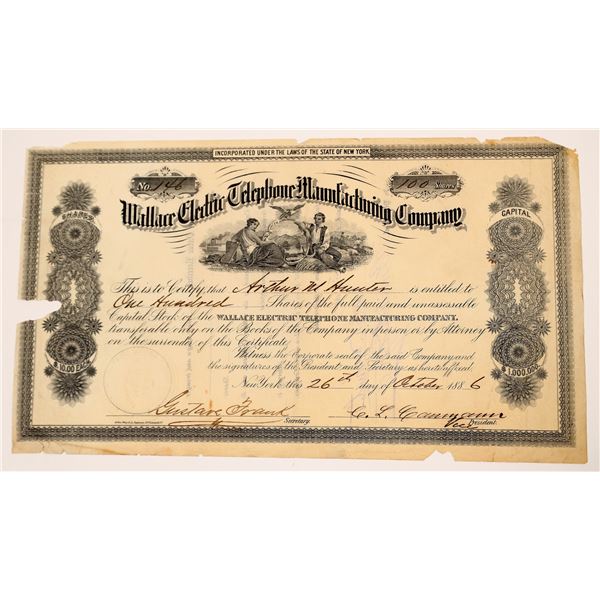 INCORPORATED UNDER THE LAWS OF THE STATE OF NEW YORK
No. 146
100 Shares
Wallace Electric Telephone Manufacturing Company
SHARES
CAPITAL
This is to Certify, that Arthur M Hunter is entitled to
One Hundred Shares of the full paid and unassessable
Capital Stock of the WALLACE ELECTRIC TELEPHONE MANUFACTURING COMPANY.
transferable only on the Books of the Company in person or by Attorney
on the surrender of this Certificate.
$10.00 EACH
$1,000,000
Witness the Corporate seal of the said Company and
the signatures of the President and Secretary, as hereto affixed.
New York this 26th day of October 1886
Gustave Frank
Secretary.
President.